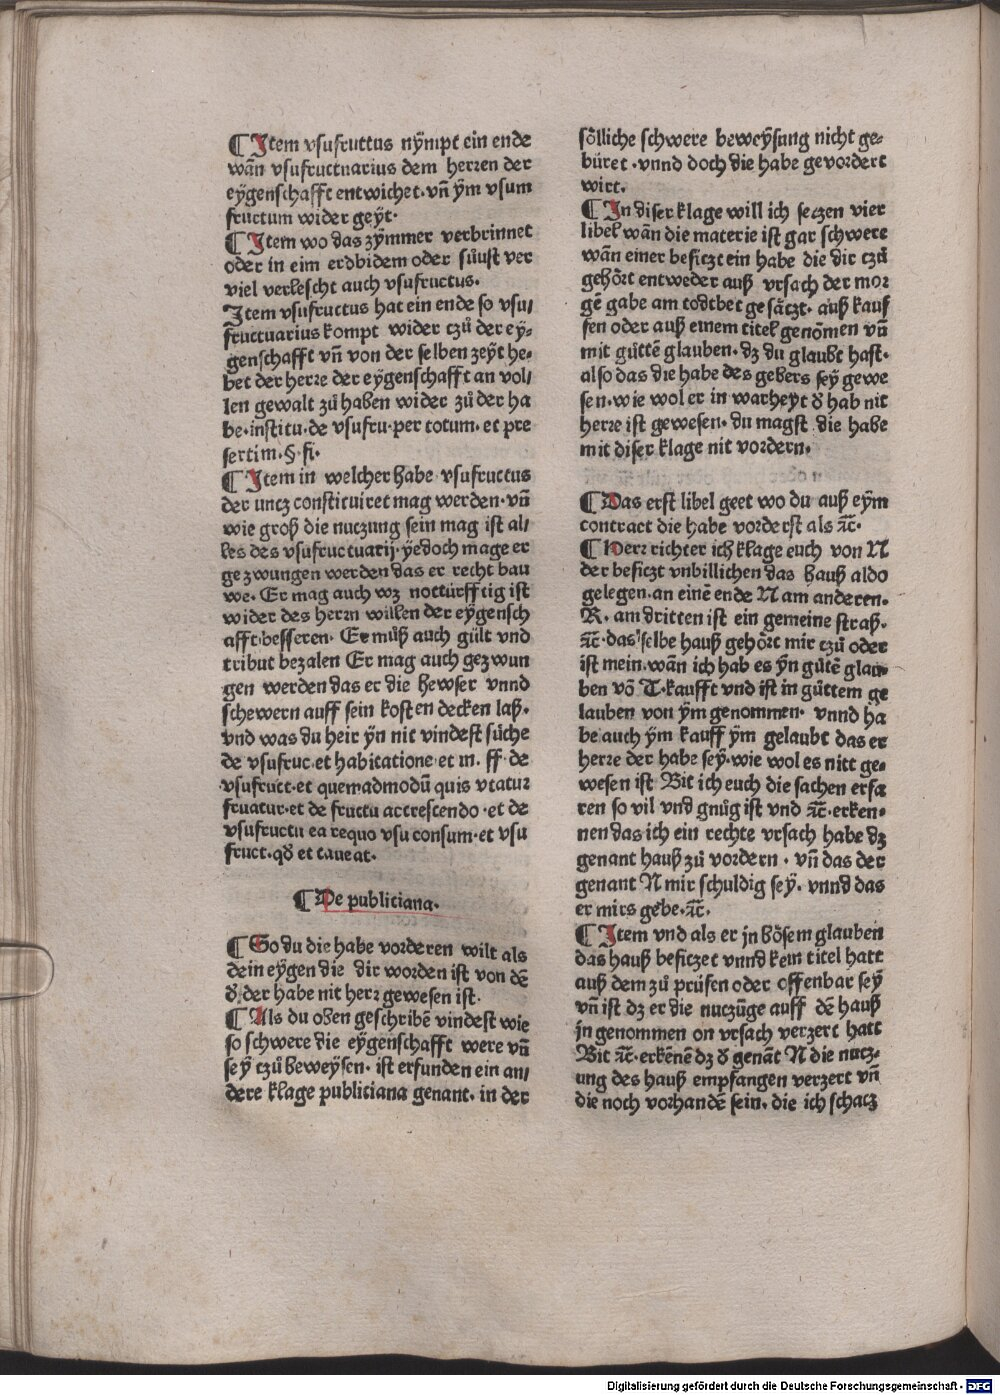 ¶ Item vsufruttus nÿmpt ein ende
wān vsufructuarius dem herren der
eÿgenschafft entwichet·vn̄ ÿm vsum
fructum wider geÿt·
¶ Item wo das zÿmmer verbrinnet
oder in eim erdbidem oder sůust ver
viel verlescht auch vsufructus·
Item vsufructus hat ein ende so vsu/
fructuarius kompt wider czů der eÿ⸗
genschafft vn̄ von der selben zeÿt he⸗
bet der herre der eÿgenschafft an vol/
len gewalt zů haben wider zů der ha
be·institu·de vsufru·per totum·et pre
sertim·§·fi·
¶ Item in welcher habe vsufructus
der uncz constituiret mag werden·vn̄
wie groß die nuczung sein mag ist al/
les des vsufructuarij·ÿedoch mage er
gezwungen werden das er recht bau
we· Er mag auch wz nottürfftig ist
wider des herrn willen der eÿgensch
afft besseren· Er můß auch gült vnd
tribut bezalen Er mag auch gezwun
gen werden das er die hewser vnnd
schewern auff sein kosten decken laß·
vnd was du heir ÿn nit vindest sůche
de vsufruc·et habitatione et m. ff·de
vsufruct·et quemadmodū quis vtatur
fruatur·et de fructu actrescendo·et de
vsufructu ea requo vsu consum·et vsu
fruct·qd̄ et caveat·
¶ De publiciana·
¶ So du die habe vorderen wilt als
dein eÿgen die dir worden ist von dē
d̄ der habe nit herr gewesen ist·
¶ Als du oben geschribē vindest wie
so schwere die eÿgenschafft were vn̄
seÿ czů beweÿsen· ist erfunden ein an/
dere klage publiciana genant· in der
sölliche schwere beweÿsung nicht ge⸗
büret·vnnd doch die habe gevordert
wirt.
¶ In diser klage will ich seczen vier
libel wān die materie ist gar schwere
wān einer besiczt ein habe die dir czů
gehört entweder auß vrsach der mor
gē gabe am todtbet gesäczt· auß kauf
fen oder auß einem titel genōmen vn̄
mit güttē glauben·dz du glaubt hast·
also das die habe des gebers seÿ gewe
sen·wie wol er in warheÿt d̄ hab nit
herre ist gewesen· du magst die habe
mit diser klage nit vordern·
¶ Das erst libel geet wo du auß eÿm
contract die habe vorderst als ꝛc̄·
¶ Herr richter ich klage euch von N
der besiczt vnbillichen das hauß aldo
gelegen·an einē ende N am anderen·
R· am dritten ist ein gemeine straß·
ꝛc̄·das selbe hauß gehört mir czů oder
ist mein·wān ich hab es ÿn gůtē glau
ben vō T·kaufft vnd ist in gůttem ge
lauben von ÿm genommen· vnnd ha
be auch ÿm kauff ÿm gelaubt das er
herre der habe seÿ·wie wol es nitt ge⸗
wesen ist Bit ich euch die sachen erfa
ren so vil vnd gnůg ist vnd ꝛc̄·erken⸗
nen das ich ein rechte vrsach habe dz
genant hauß zů vordern · vn̄ das der
genant N mir schuldig seÿ· vnnd das
er mirs gebe·ꝛc̄·
¶ Item vnd als er jn bösem glauben
das hauß besiczet vnnd kein titel hatt
auß dem zů prüfen oder offenbar seÿ
vn̄ ist dz er die nuczůge auff dē hauß
jn genommen on vrsach verzert hatt
Bit ꝛc̄·erkēnē dz d̄ genāt N die nucz⸗
ung des hauß empfangen verzert vn̄
die noch vorhandē sein· die ich schacz
Digitalisierung gefördert durch die Deutsche Forschungsgemeinschaft - DFG